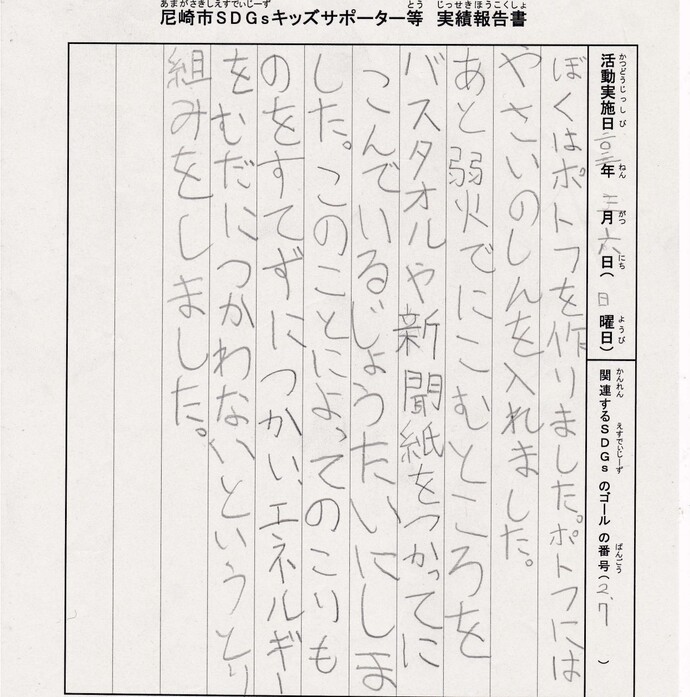 尼崎市SDGsキッズサポーター等 実績報告書
あまがさきしえすでぃじーず とう じっせきほうこくしょ
活動実施日 二〇二二年 二月 六日( 日 曜日)
かつどうじっしび ねん がつ にち ようび
関連するSDGsのゴールの番号( 2、7 )
かんれん えすでぃじーず ばんごう
ぼくはポトフを作りました。ポトフには
やさいのしんを入れました。
あと弱火でにこむところを
バスタオルや新聞紙をつかってに
こんでいるじょうたいにしま
した。このことによってのこりも
のをすてずにつかい、エネルギー
をむだにつかわないというとり
組みをしました。